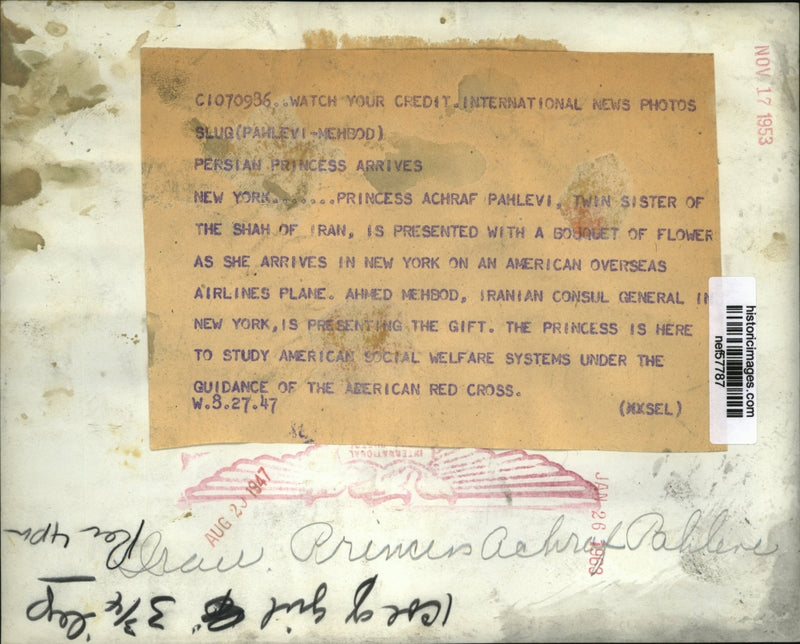 C1070986..WATCH YOUR CREDIT.INTERNATIONAL NEWS PHOTOS
SLUG(PAHLEVI-MEHBOD)
PERSIAN PRINCESS ARRIVES
NEW YORK.......PRINCESS ACHRAF PAHLEVI, TWIN SISTER OF
THE SHAH OF IRAN, IS PRESENTED WITH A BOUQUET OF FLOWER
AS SHE ARRIVES IN NEW YORK ON AN AMERICAN OVERSEAS
AIRLINES PLANE. AHMED MEHBOD, IRANIAN CONSUL GENERAL IN
NEW YORK,IS PRESENTING THE GIFT. THE PRINCESS IS HERE
TO STUDY AMERICAN SOCIAL WELFARE SYSTEMS UNDER THE
GUIDANCE OF THE AMERICAN RED CROSS.
W.8.27.47 (NXSEL)
NOV 17 1953
historicimages.com
nef57787
INTERNATIONAL
AUG 29 1947
JAN 26 1963
Iran. Princess Achraf Pahlevi
3 3/4